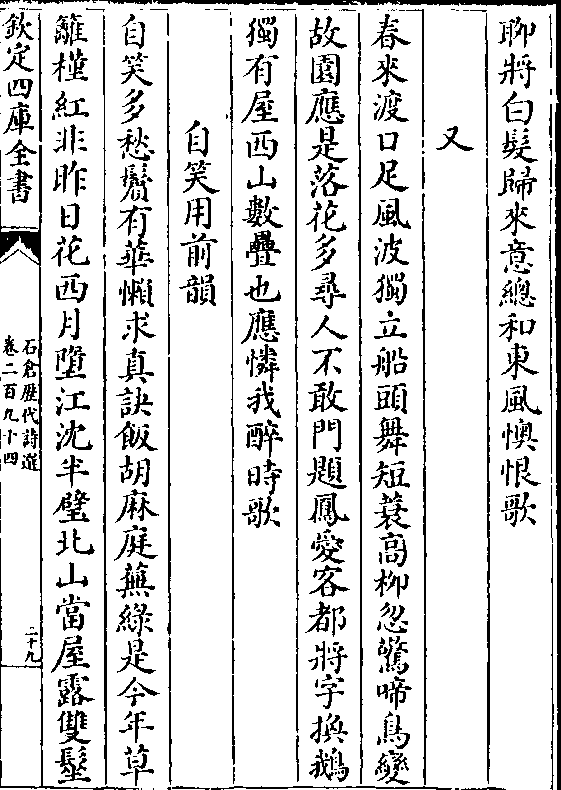 聊將白髮歸來意總和東風懊恨歌
又
春來渡口足風波獨立船頭舞短蓑高柳忽驚啼鳥變
故園應是落花多尋人不敢門題鳳愛客都將字換鵝
獨有屋西山數疊也應憐我醉時歌
自笑用前韻
自笑多愁鬢有華懶求真訣飯胡麻庭蕪綠是今年草
籬槿紅非昨日花西月墮江沈半璧北山當屋露雙髽
欽定四庫全書
石倉歷代詩選
卷二百九十四
二十九